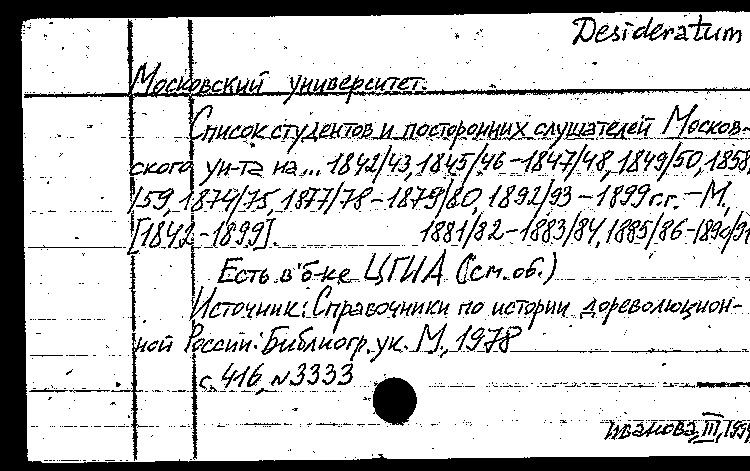 Desideratum
Московский университет.
Список студентов и посторонних слушателей Москов-
ского ун-та на... 1842/43, 1845/46-1847/48, 1849/50, 1858
/59, 1874/75, 1877/78-1879/80, 1892/93-1899 г.г. - М.,
[1842-1899]. 1881/82-1883/84, 1885/86-1890/91
Есть в б-ке ЦГИА (см. об.)
Источник: Справочники по истории дореволюцион-
ной России: Библиогр. ук. М., 1978
с. 416, №3333
Иванова, III,